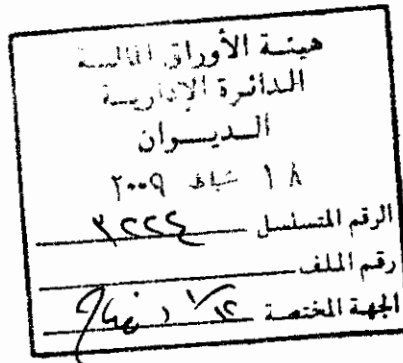 هيئة الأوراق المالية
الدائرة الإدارية
الديوان
١٨ شباط ٢٠٠٩
الرقم المتسلسل ٣٢٢٤
رقم الملف
الجهة المختصة